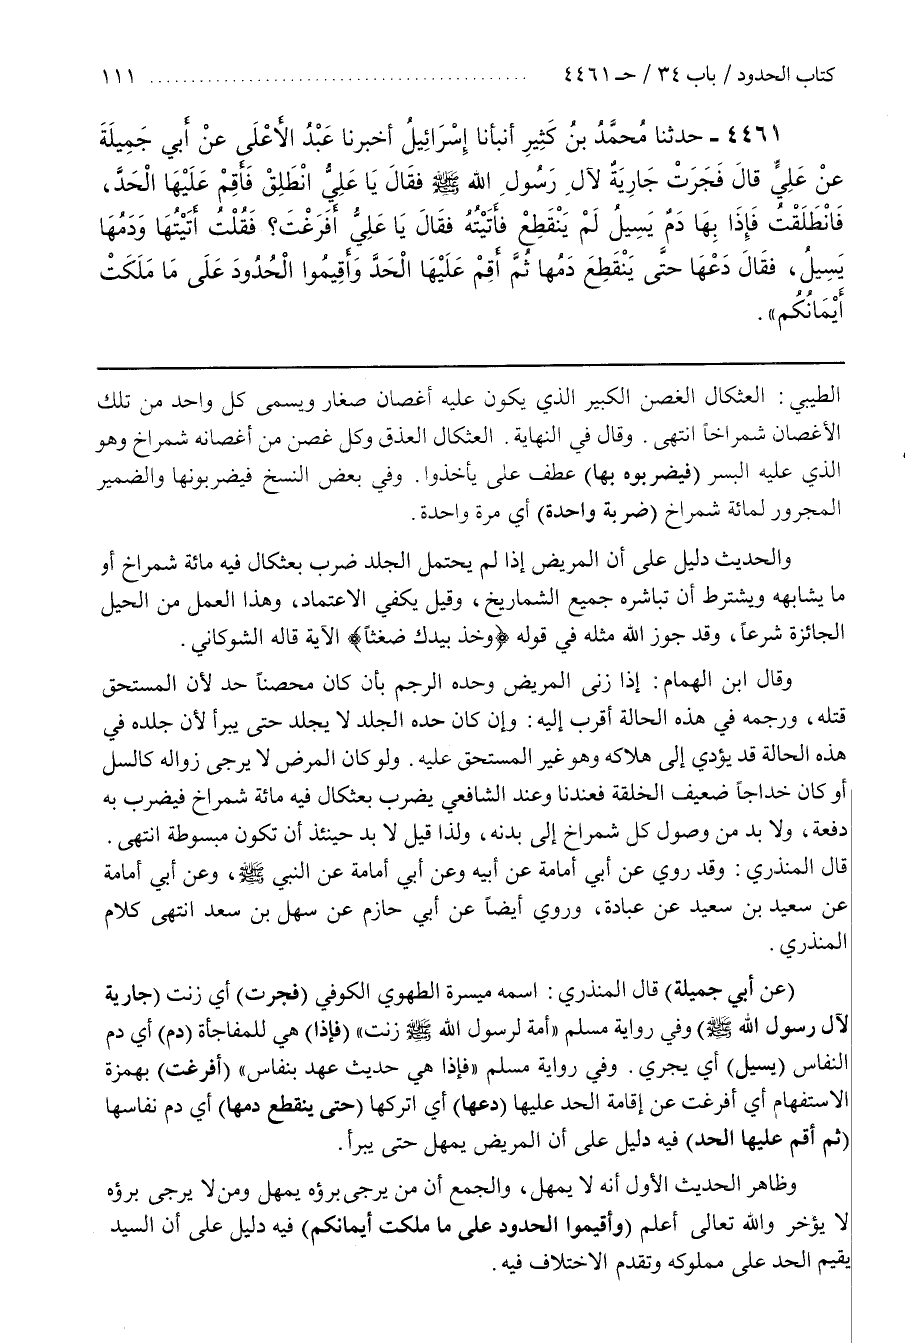 كتاب الحدود / باب ٣٤ / حـ ٤٤٦١ ............................................. ١١١
٤٤٦١ ـ حدثنا مُحمَّدُ بنُ كَثِيرٍ أنبأنا إسْرَائِيلُ أخبرنا عَبْدُ الأَعْلَى عنْ أَبي جَمِيلَةَ
عنْ عَلِيٍّ قالَ فَجَرَتْ جَارِيَةٌ لآلِ رَسُولِ الله ﷺ فقَالَ يَا عَلِيُّ انْطَلِقْ فَأَقِمْ عَلَيْهَا الْحَدَّ،
فَانْطَلَقْتُ فَإِذَا بِهَا دَمٌ يَسِيلُ لَمْ يَنْقَطِعْ فأتَيْتُهُ فقالَ يا عَلِيُّ أفَرَغْتَ؟ فَقُلْتُ أَتَيْتُهَا وَدَمُهَا
يَسِيلُ، فقالَ دَعْهَا حتَّى يَنْقَطِعَ دَمُها ثُمَّ أَقِمْ عَلَيْهَا الْحَدَّ وَأَقِيمُوا الْحُدُودَ عَلَى مَا مَلَكَتْ
أَيْمَانُكُم».
الطيبي: العثكال الغصن الكبير الذي يكون عليه أغصان صغار ويسمى كل واحد من تلك
الأغصان شمراخاً انتهى. وقال في النهاية. العثكال العذق وكل غصن من أغصانه شمراخ وهو
الذي عليه البسر (فيضربوه بها) عطف على يأخذوا. وفي بعض النسخ فيضربونها والضمير
المجرور لمائة شمراخ (ضربة واحدة) أي مرة واحدة.
والحديث دليل على أن المريض إذا لم يحتمل الجلد ضرب بعثكال فيه مائة شمراخ أو
ما يشابهه ويشترط أن تباشره جميع الشماريخ، وقيل يكفي الاعتماد، وهذا العمل من الحيل
الجائزة شرعاً، وقد جوز الله مثله في قوله ﴿وخذ بيدك ضغثاً﴾ الآية قاله الشوكاني.
وقال ابن الهمام: إذا زنى المريض وحده الرجم بأن كان محصناً حد لأن المستحق
قتله، ورجمه في هذه الحالة أقرب إليه: وإن كان حده الجلد لا يجلد حتى يبرأ لأن جلده في
هذه الحالة قد يؤدي إلى هلاكه وهو غير المستحق عليه. ولو كان المرض لا يرجى زواله كالسل
أو كان خداجاً ضعيف الخلقة فعندنا وعند الشافعي يضرب بعثكال فيه مائة شمراخ فيضرب به
دفعة، ولا بد من وصول كل شمراخ إلى بدنه، ولذا قيل لا بد حينئذ أن تكون مبسوطة انتهى.
قال المنذري: وقد روي عن أبي أمامة عن أبيه وعن أبي أمامة عن النبي ﷺ، وعن أبي أمامة
عن سعيد بن سعيد عن عبادة، وروي أيضاً عن أبي حازم عن سهل بن سعد انتهى كلام
المنذري.
(عن أبي جميلة) قال المنذري: اسمه ميسرة الطهوي الكوفي (فجرت) أي زنت (جارية
لآل رسول الله ﷺ) وفي رواية مسلم «أمة لرسول الله ﷺ زنت» (فإذا) هي للمفاجأة (دم) أي دم
النفاس (يسيل) أي يجري. وفي رواية مسلم «فإذا هي حديث عهد بنفاس» (أفرغت) بهمزة
الاستفهام أي أفرغت عن إقامة الحد عليها (دعها) أي اتركها (حتى ينقطع دمها) أي دم نفاسها
(ثم أقم عليها الحد) فيه دليل على أن المريض يمهل حتى يبرأ.
وظاهر الحديث الأول أنه لا يمهل، والجمع أن من يرجى برؤه يمهل ومن لا يرجى برؤه
لا يؤخر والله تعالى أعلم (وأقيموا الحدود على ما ملكت أيمانكم) فيه دليل على أن السيد
يقيم الحد على مملوكه وتقدم الاختلاف فيه.